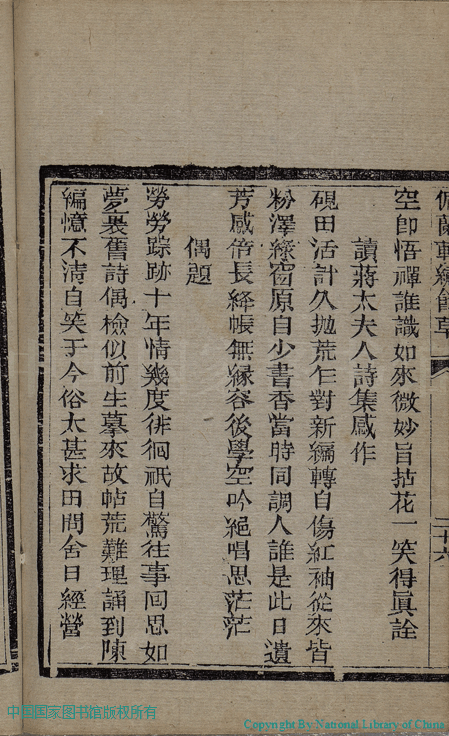 空卽悟禪誰識如來微妙旨拈花一笑得眞詮
讀蔣太夫人詩集感作
硯田活計久拋荒乍對新編轉自傷紅袖從來皆
粉澤綠窗原自少書香當時同調人誰是此日遺
芳感倍長絳帳無緣容後學空吟絕唱思茫茫
偶題
勞勞踪跡十年情幾度徘徊祇自驚往事回思如
夢裹舊詩偶檢似前生摹來故帖荒難理誦到陳
編憶不清自笑于今俗太甚求田問舍日經營
二十六
中国国家图书馆版权所有
Copyright By National Library of China